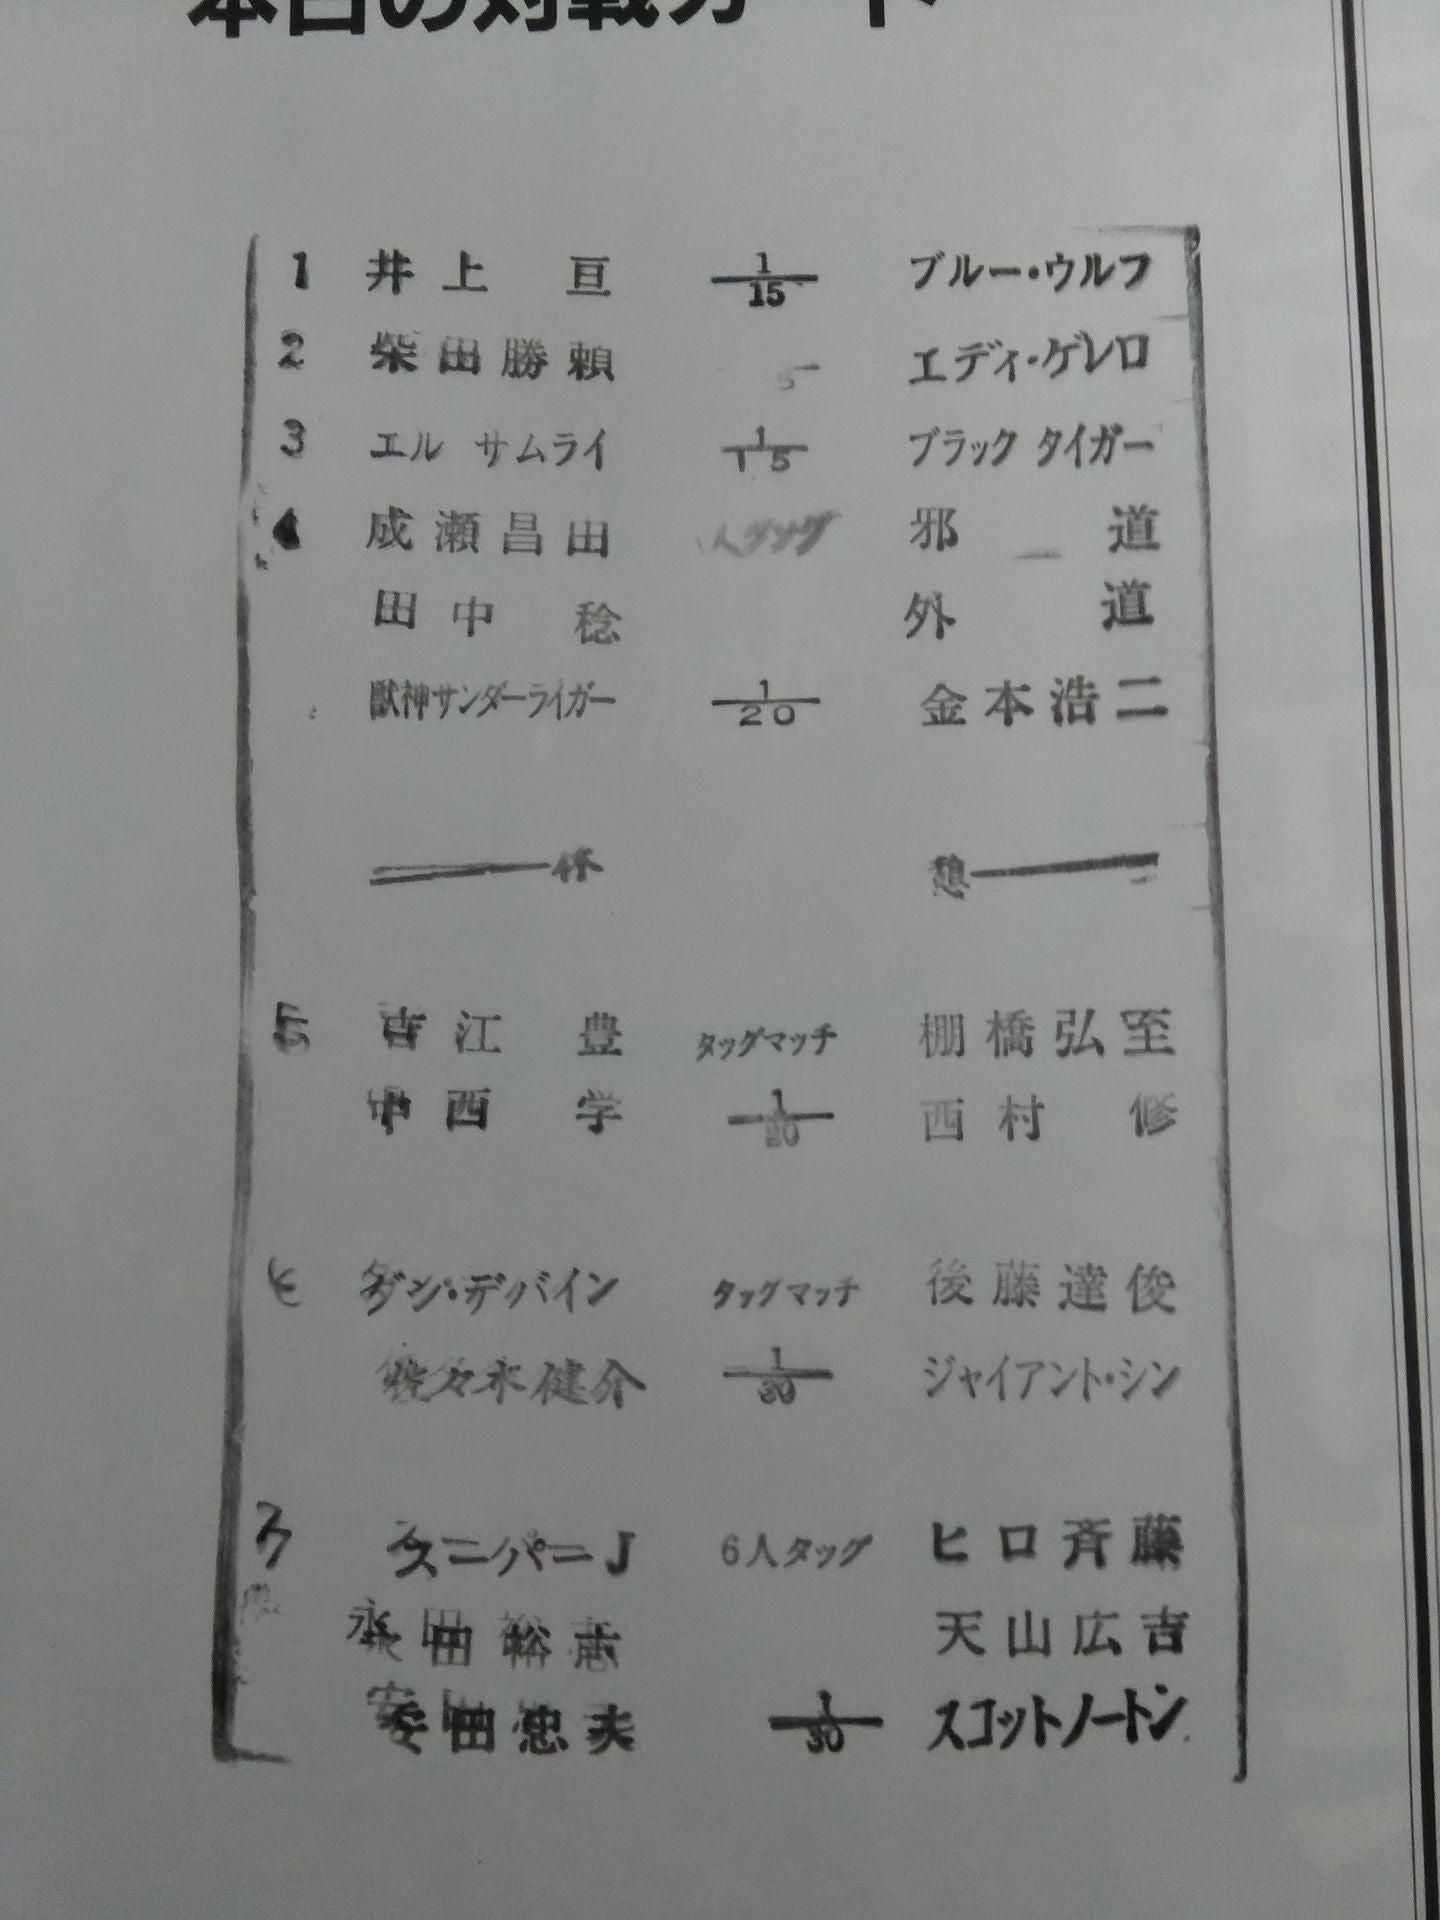 本日の対戦カード
1 井上 亘 1/15 ブルー・ウルフ
2 柴田勝頼 5 エディ・ゲレロ
3 エル サムライ 1/15 ブラック タイガー
4 成瀬昌由 人タッグ 邪道
田中 稔 外道
獣神サンダーライガー 1/20 金本浩二
休 憩
5 吉江 豊 タッグマッチ 棚橋弘至
中西 学 1/20 西村 修
6 ダン・デバイン タッグマッチ 後藤達俊
佐々木健介 1/30 ジャイアント・シン
7 スーパーJ 6人タッグ ヒロ斉藤
永田裕志 天山広吉
安田忠夫 1/30 スコットノートン